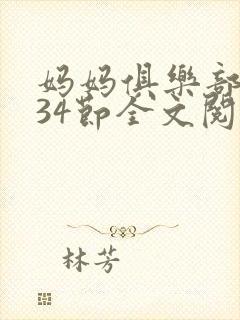 妈妈俱樂部
34節全文閱
林芳